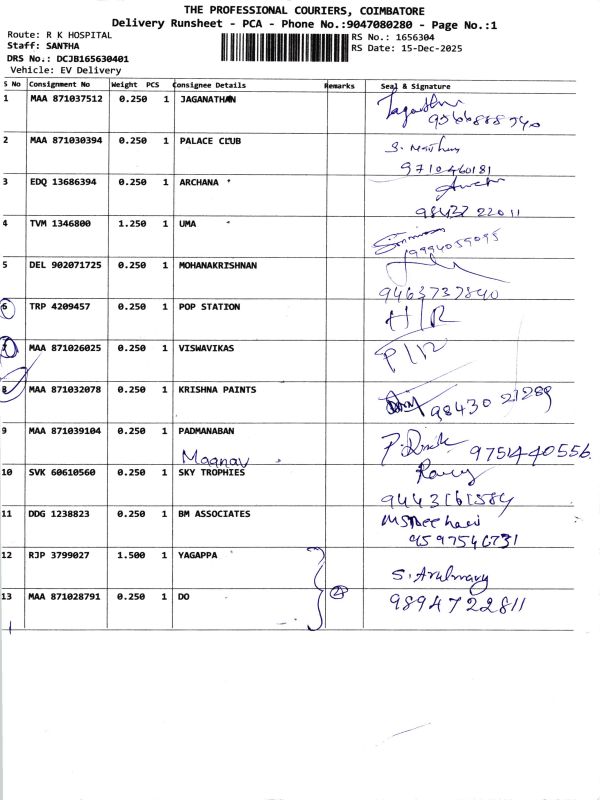 THE PROFESSIONAL COURIERS, COIMBATORE
Delivery Runsheet - PCA - Phone No.:9047080280 - Page No.:1
Route: R K HOSPITAL
Staff: SANTHA
DRS No.: DCJB165630401
Vehicle: EV Delivery
RS No.: 1656304
RS Date: 15-Dec-2025
S No Consignment No Weight PCS Consignee Details Remarks Seal & Signature
1 MAA 871037512 0.250 1 JAGANATHAN
2 MAA 871030394 0.250 1 PALACE CLUB
9710460181
3 EDQ 13686394 0.250 1 ARCHANA
98437 22011
4 TVM 1346800 1.250 1 UMA
9994059095
5 DEL 902071725 0.250 1 MOHANAKRISHNAN
9463737840
6 TRP 4209457 0.250 1 POP STATION H/R
7 MAA 871026025 0.250 1 VISWAVIKAS P/R
8 MAA 871032078 0.250 1 KRISHNA PAINTS 98430 21289
9 MAA 871039104 0.250 1 PADMANABAN 9751440556
10 SVK 60610560 0.250 1 SKY TROPHIES
11 DDG 1238823 0.250 1 BM ASSOCIATES
9597546731
12 RJP 3799027 1.500 1 YAGAPPA
13 MAA 871028791 0.250 1 DO 2 9894722811